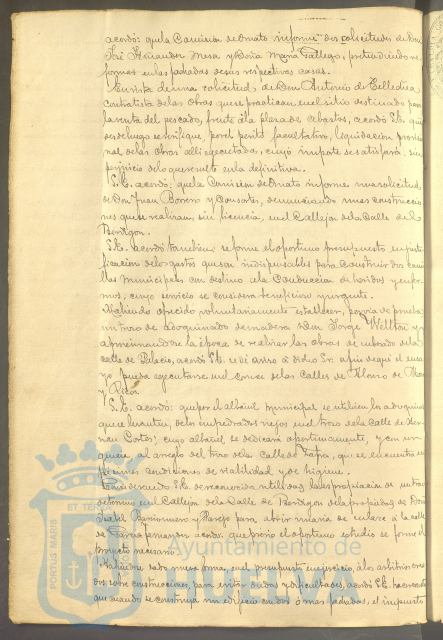 acordó: que la Comisión de Ornato informe dos solicitudes de Don
José Fernandez Mesa y Doña Maria Gallego, pretendiendo re-
formas en las fachadas de sus respectivas casas.
En vista de una solicitud de Don Antonio de Tellechea
contratista de las obras que se practican en el sitio destinado para
la venta del pescado, frente á la plaza de abastos, acordó S.E. que
desde luego se verifique, por el perito facultativo, liquidación provisio-
nal de las obras alli ejecutadas, cuyo importe se satisfará, sin
perjuicio de lo que resulte en la definitiva.
S.E. acordó: que la Comision de Ornato informe una solicitud
de Don Juan Borrero y Consortes, denunciando unas construccio-
nes que se realizan, sin licencia, en el Callejon de la Calle del
Berdigon.
S.E. acordó tambien: se forme el oportuno presupuesto en justi-
ficacion de los gastos que son indispensables para construir dos cami-
llas Municipales con destino á la conduccion de heridos y enfer-
mos, cuyo servicio se considera beneficioso y urgente.
Habiendo ofrecido voluntariamente establecer, por via de prueba
un trozo de adoquinado de madera Don Jorge
aproximandose la época de realizar las obras de
calle de Palacio, acordó S.E. se dé aviso á dicho Sr. á fin de que el ensa-
yo pueda ejecutarse en el cruce de las Calles de Alonso de Mora
y Ricos.
S.E. acordó: que por el albañil municipal se utilicen los adoquines
que se levanten, de los empedrados viejos en el trozo de la Calle de Her-
nan Cortés; cuyo albañil se dedicará oportunamente, y con ur-
gencia al arreglo del trozo de la Calle de Tapia, que se encuentra en
pésimas condiciones de viabilidad y de higiene.
Considerando S.E. de reconocida utilidad la expropiacion de un trozo
de terreno en el Callejon de la Calle de Berdigon de la propiedad de Doña
Isabel y para abrir una via de enlace á la calle
de Garcia Fernandez acordó: que previo el oportuno estudio se forme el
proyecto necesario.
Habiendo dado nueva forma, en el presupuesto en ejercicio, á los arbitrios crea-
dos sobre construcciones, para evitar dudas y dificultades, acordó S.E. hacer constar
que cuando se construya un edificio con dos ó mas fachadas, el impuesto
PORTUS MARIS
ET TERRAE
Ayuntamiento de
HUELVA